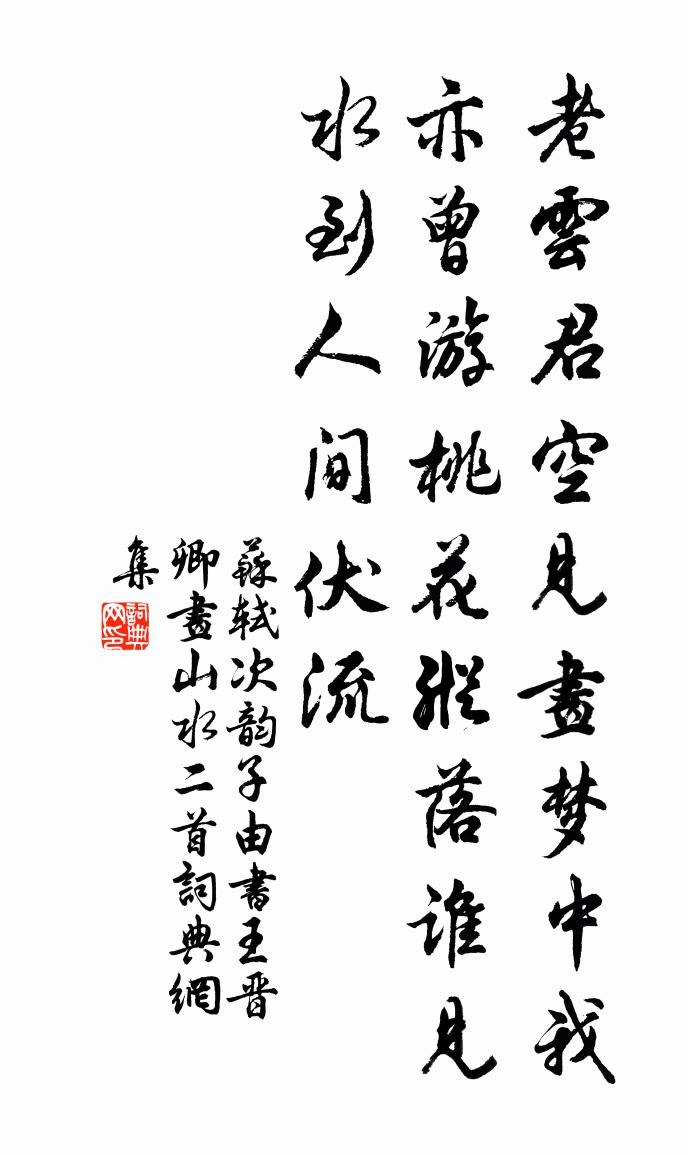 老雲君空見畫梦中我
亦曾游桃花縱落谁見
水到人间伏流
蘇軾次韵子由書王晋
卿畫山水二首詞典網
集
詞典网印